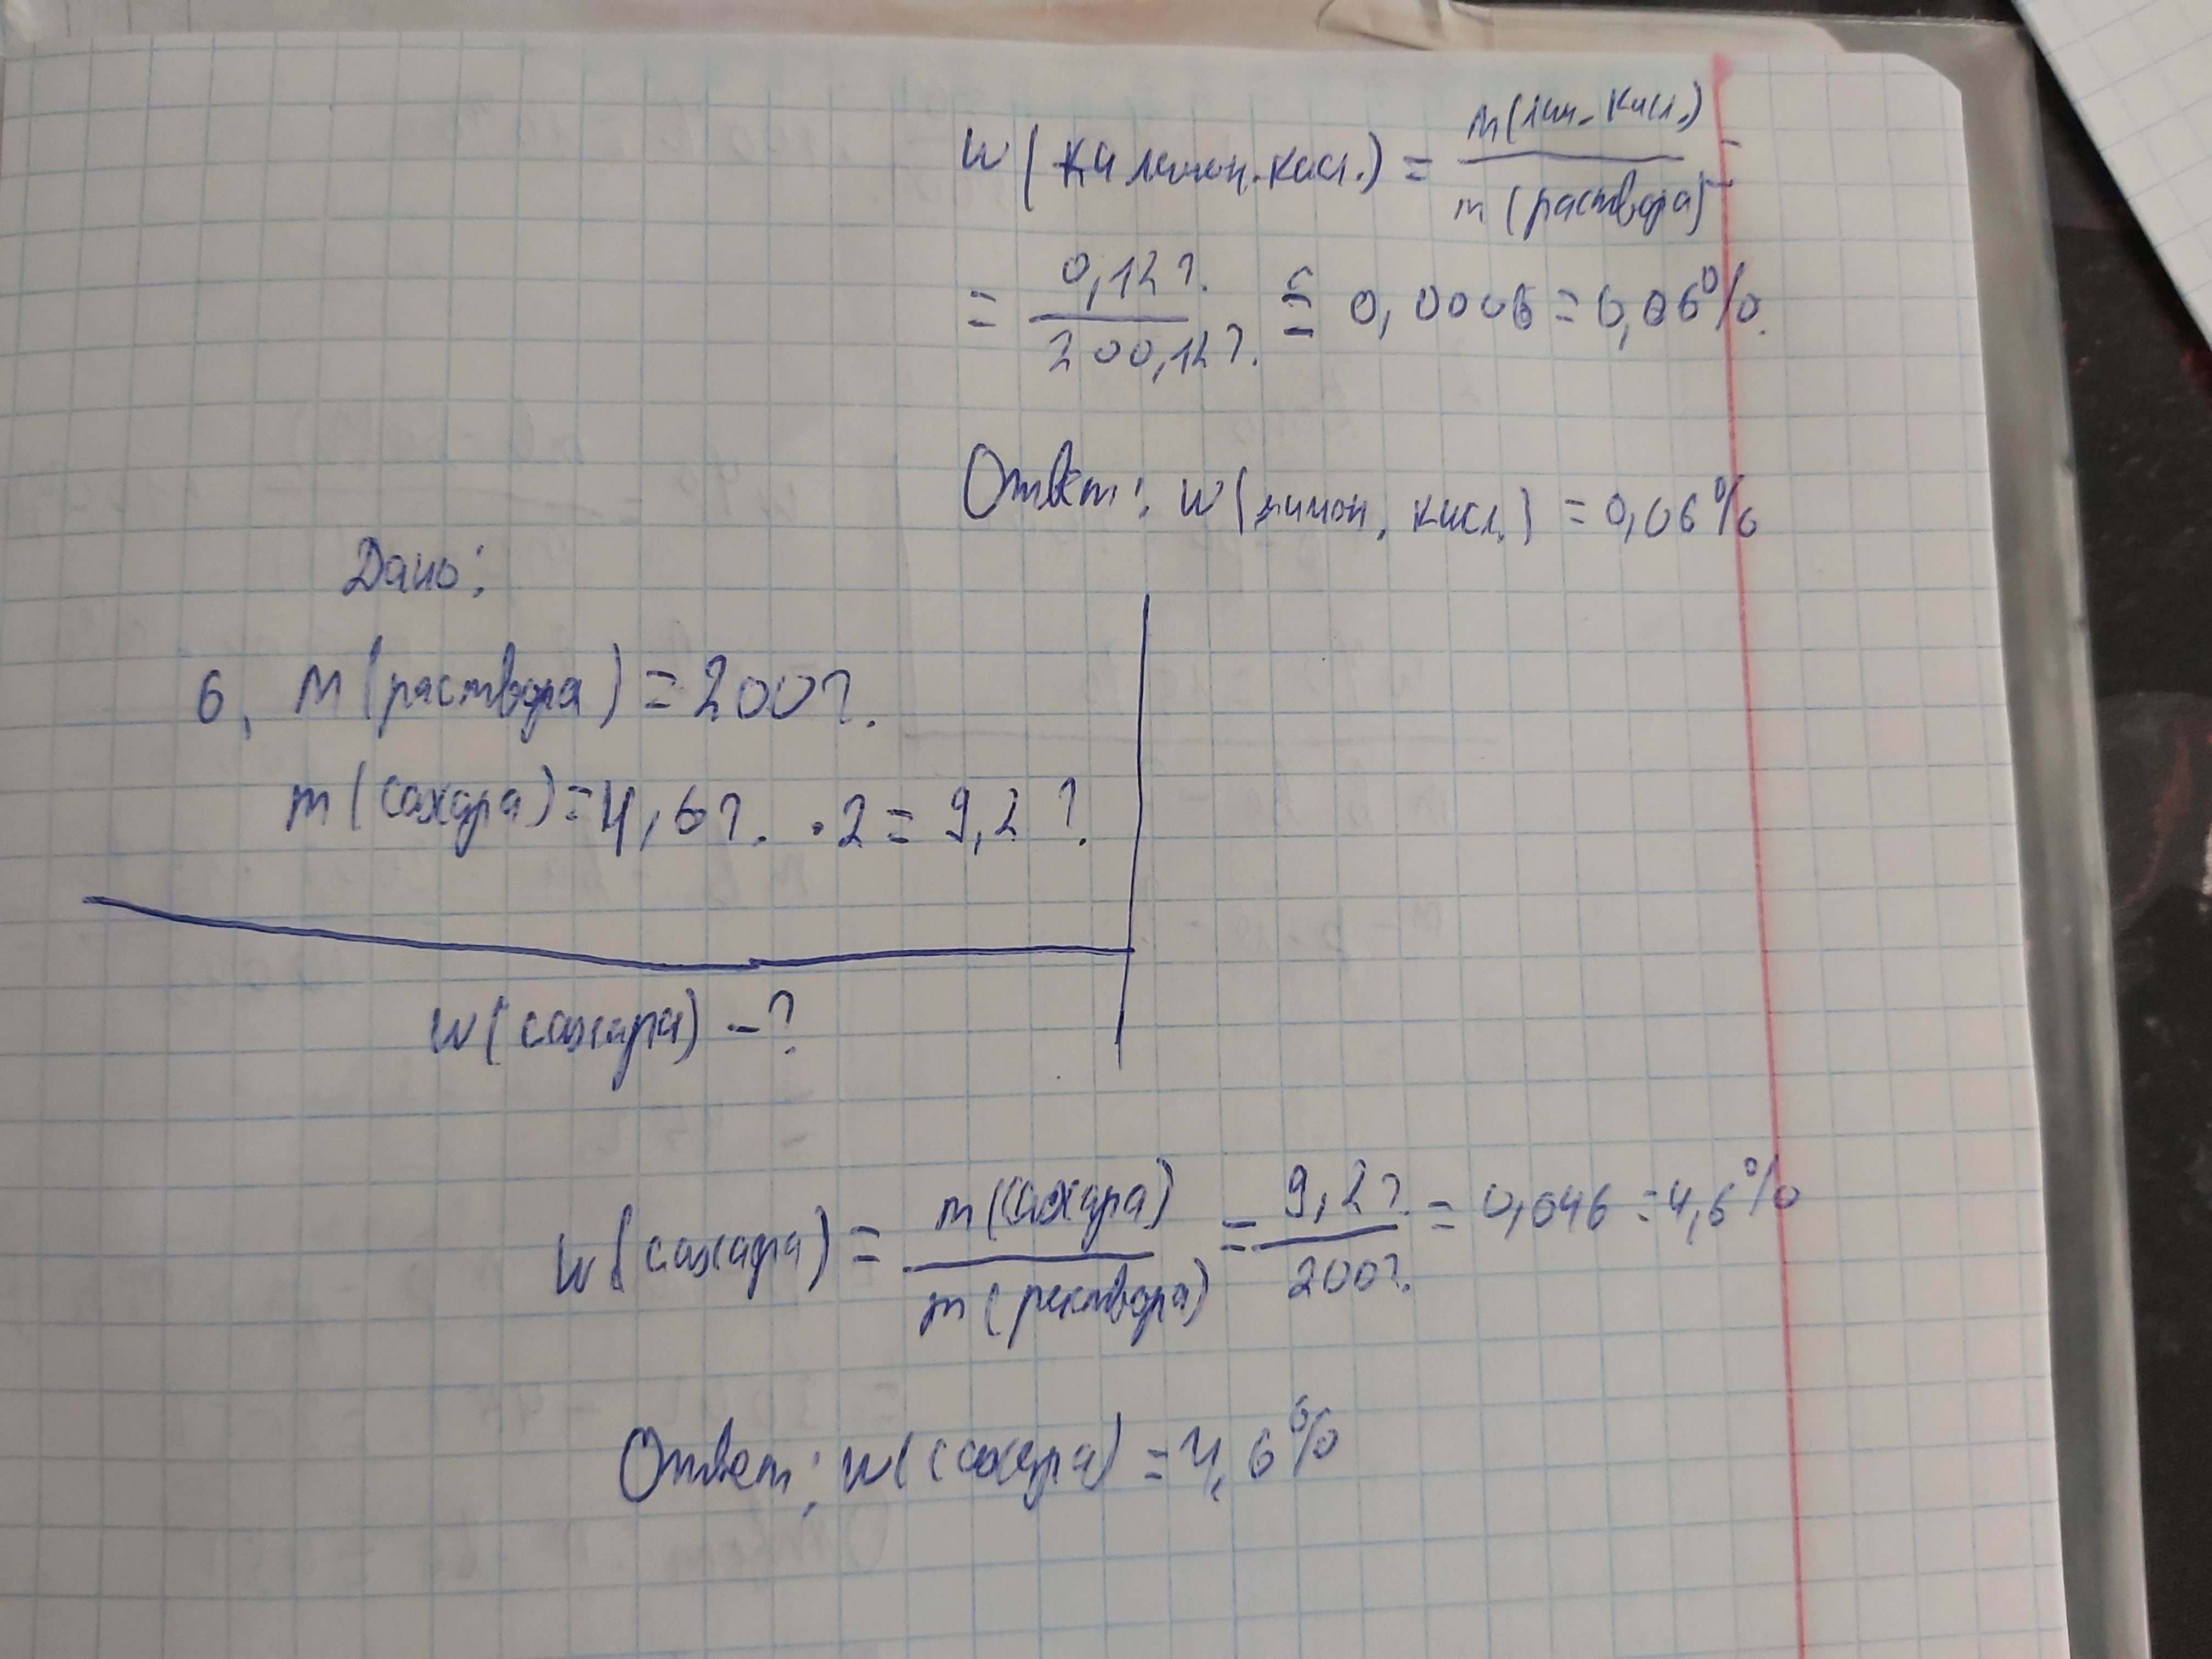 w(лимон. кисл.) = m(лим. кисл.) / m(раствора) =
= 0,12 г. / 200,12 г. ≈ 0,0006 = 0,06%.
Ответ: w(лимон. кисл.) = 0,06%
Дано:
6. m(раствора) = 200 г.
m(сахара) = 4,6 г. · 2 = 9,2 г.
w(сахара) - ?
w(сахара) = m(сахара) / m(раствора) = 9,2 г. / 200 г. = 0,046 = 4,6%
Ответ: w(сахара) = 4,6%